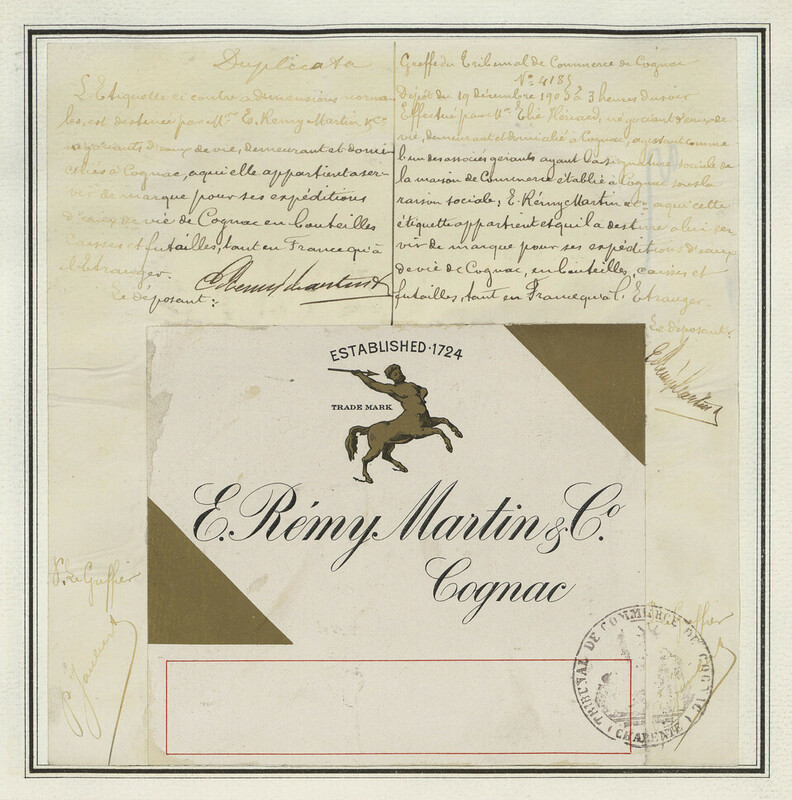 Duplicata
L'Etiquette ci contre a dimensions norma-
les, est destinée par Mrs E. Remy Martin & Co
négociants d'eaux de vie, demeurant et domi-
ciliés à Cognac, à qui elle appartient a ser-
vir de marque pour ses expéditions
d'eaux de vie de Cognac en bouteilles
caisses et futailles, tant en France qu'à
l'Etranger.
Le déposant:
E. Remy Martin & Co
Greffe du Tribunal de Commerce de Cognac
No 4185
Dépôt du 19 décembre 1903 à 3 heures du soir
Effectué par Mr Elie, négociant d'eaux de
vie, demeurant et domicilié à Cognac, agissant comme
l'un des associés gérants ayant la signature sociale de
la maison de Commerce établie à Cognac sous la
raison sociale; E. Rémy Martin & Co à qui cette
étiquette appartient et qu'il a destine a lui ser
vir de marque pour ses expéditions d'eaux
de vie de Cognac, en bouteilles, caisses et
futailles, tant en France qu'a l'Etranger.
Le déposant:
E. Rémy Martin & Co
ESTABLISHED·1724
TRADE MARK
E. Rémy Martin & Co.
Cognac
Le Greffier
Greffier
TRIBUNAL DE COMMERCE DE COGNAC
(CHARENTE)